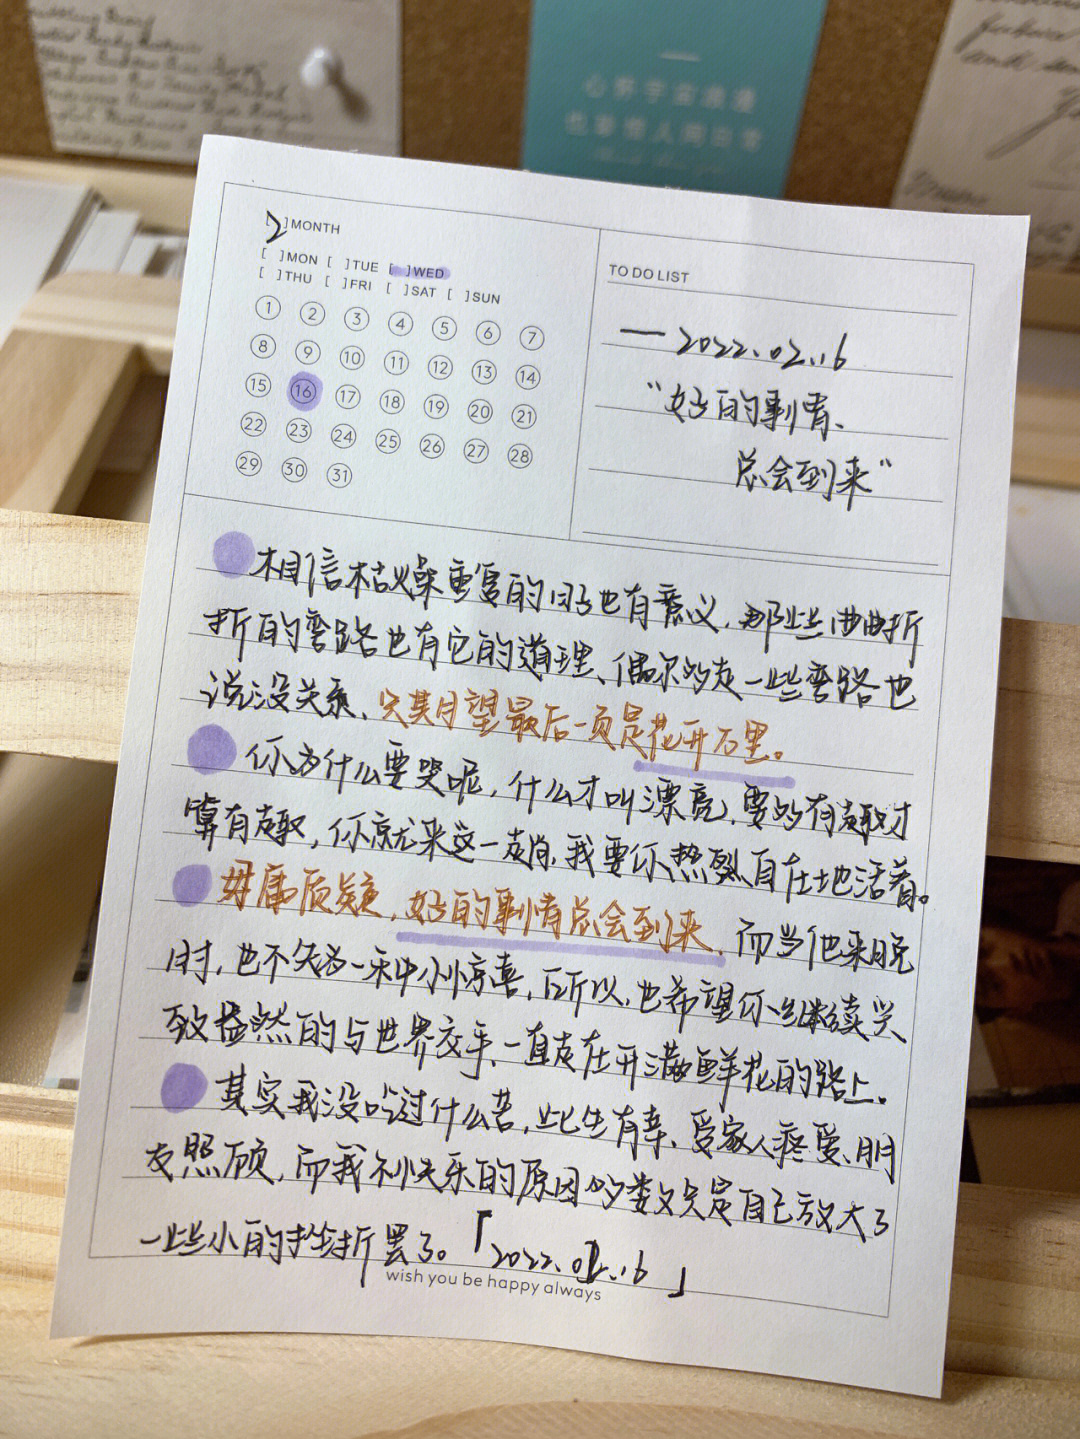 心怀宇宙浪漫
也珍惜人间日常
[2]MONTH
[ ]MON [ ]TUE [ ]WED
[ ]THU [ ]FRI [ ]SAT [ ]SUN
1 2 3 4 5 6 7
8 9 10 11 12 13 14
15 16 17 18 19 20 21
22 23 24 25 26 27 28
29 30 31
TO DO LIST
—2022.02.16
“好的事情、
总会到来”
相信枯燥重复的日子也有意义,那些曲曲折
折的弯路也有它的道理、偶尔多走一些弯路也
说没关系、只期望最后一页是花开万里。
你为什么要哭呢,什么才叫漂亮,要多有趣才
算有趣,你就来这一趟,我要你热烈自在地活着。
毋庸质疑,好的事情总会到来,而当他来晚
时,也不失为一种小惊喜,所以,也希望你继续兴
致盎然的与世界交手、一直走在开满鲜花的路上.
其实我没吃过什么苦,此生有幸、受家人疼爱、朋
友照顾,而我不快乐的原因多数只是自己放大了
一些小的挫折罢了。「2022.02.16」
wish you be happy always